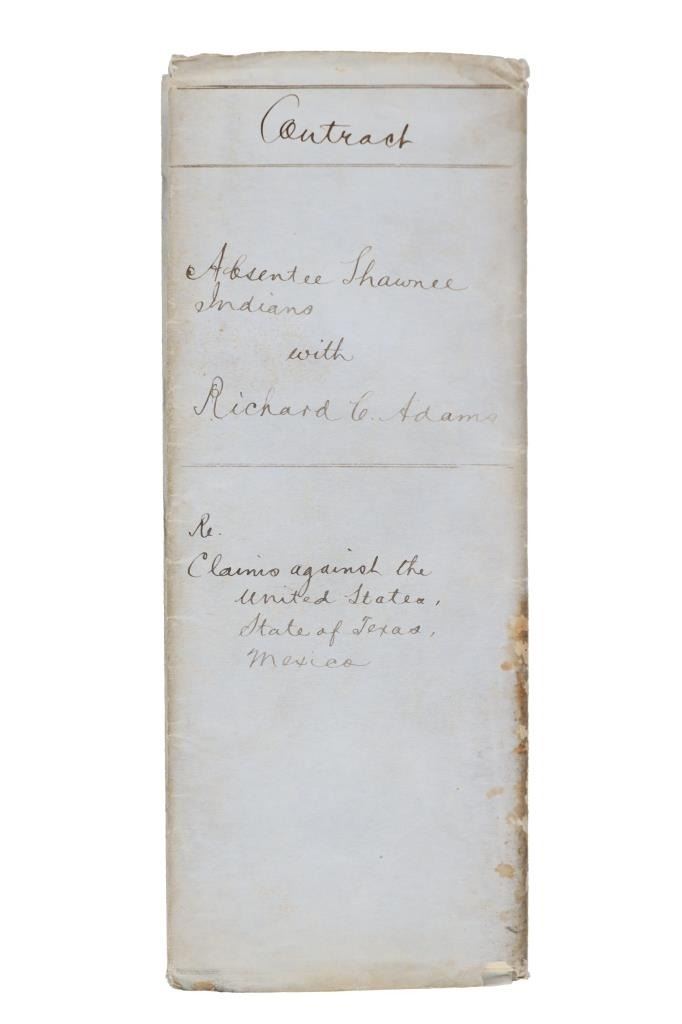 Contract
Absentee Shawnee
Indians
with
Richard C. Adams
Re.
Claims against the
United States,
State of Texas,
Mexico